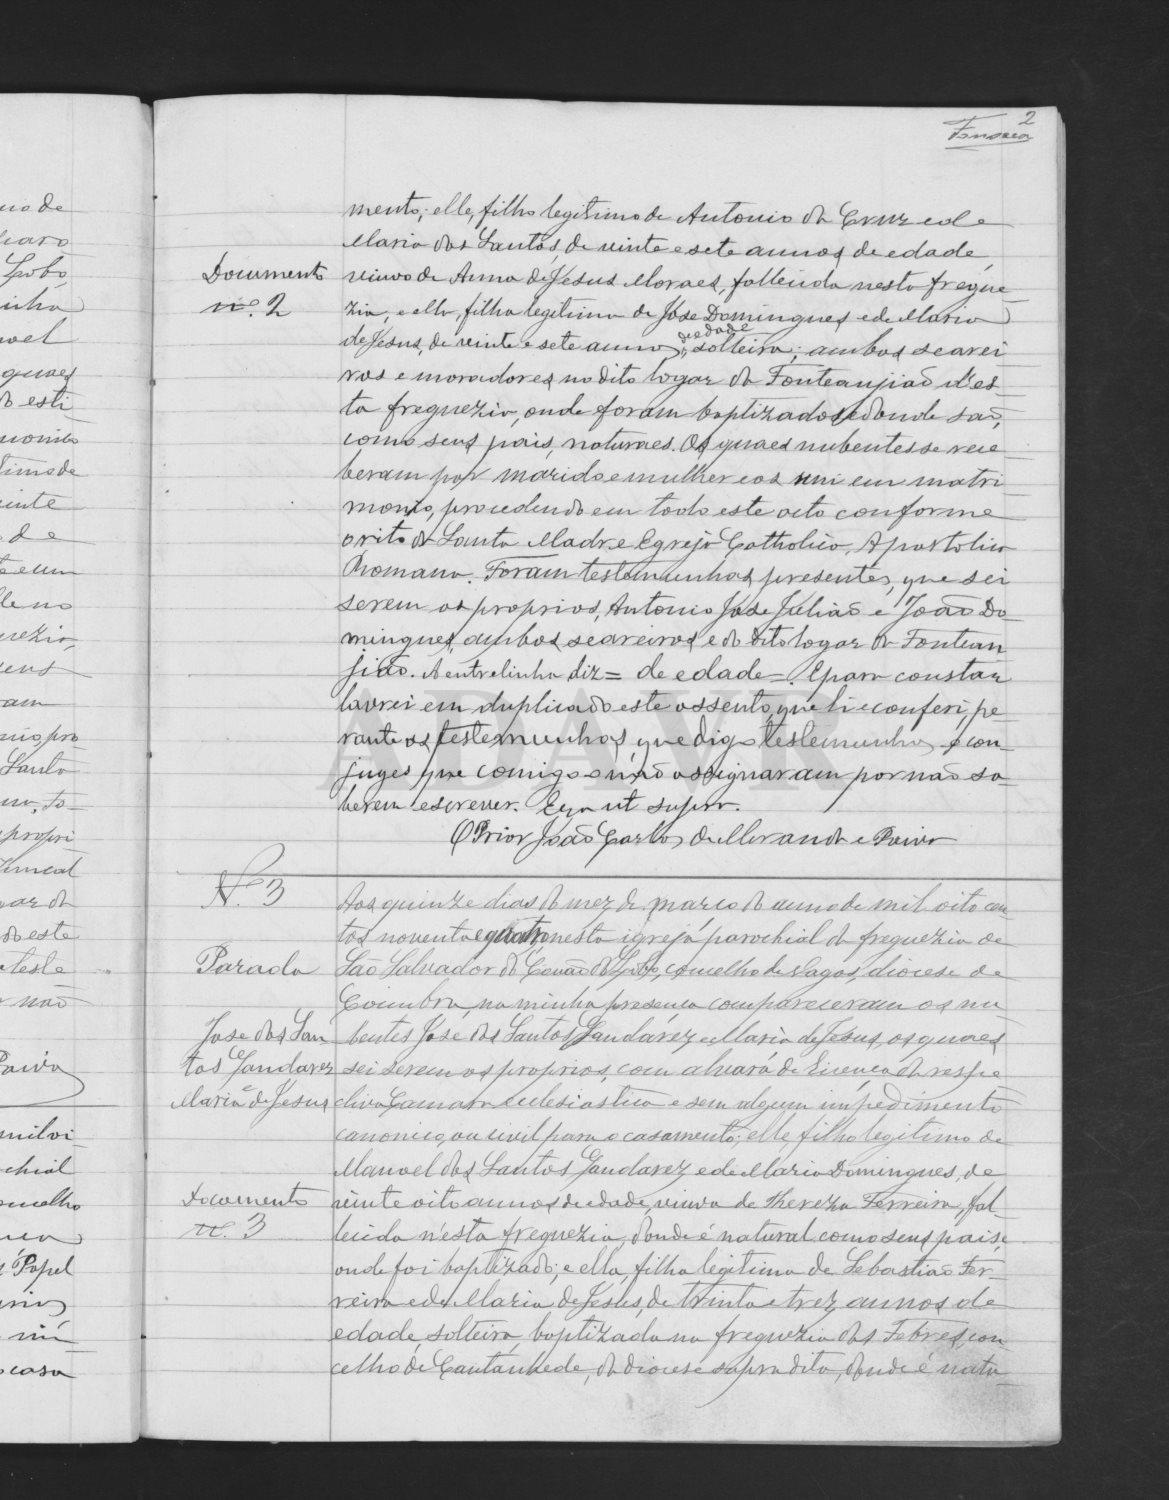 2
Fonseca
mento; elle, filho legitimo de Antonio da Cruz e de
Maria dos Santos, de vinte e sete annos de edade,
Documento
nº. 2
viuvo de Anna de Jesus Moraes, fallecida nesta fregue-
zia, e ella, filha legitima de José Domingues e de Maria
de Jesus, de vinte e sete annos de edade, solteira; ambos searei
ros e moradores no dito logar da Fonteanjião d'es-
ta freguezia, onde foram baptizados e donde são,
como seus pais, naturaes. Os quaes nubentes se rece-
beram por marido e mulher e os uni em matri
monio, procedendo em todo este acto conforme
o rito da Santa Madre Egreja Catholica, Apostolica
Romana. Foram testemunhas presentes, que sei
serem os proprios, Antonio José Julião e João Do-
mingues, ambos seareiros e do dito logar da Fontean
jião. A entrelinha diz = de edade =. E para constar
lavrei em duplicado este assento, que li e conferi, pe-
rante as testemunhas, que digo testemunhas e con-
juges que comigo não assignaram por não sa-
berem escrever. Era ut supra.
O Prior João Carlos de Miranda e Paiva
Nº. 3
Parada
José dos San
tos Gandarez
e
Maria de Jesus
Documento
nº. 3
Aos quinze dias do mez de março do anno de mil oito cen-
tos noventa e quatro nesta igreja parochial da freguezia de
São Salvador do Covão do Lobo, concelho de Vagos, diocese de
Coimbra, na minha presença compareceram os nu
bentes José dos Santos Gandarez e Maria de Jesus, os quaes
sei serem os proprios, com alvará de licença da respe
ctiva Camara ecclesiastica e sem algum impedimento
canonico, ou civil para o casamento; elle filho legitimo de
Manoel dos Santos Gandarez e de Maria Domingues, de
vinte oito annos de edade, viuvo de Thereza Ferreira, fal-
lecida n'esta freguezia, donde é natural como seus pais e
onde foi baptizado; e ella, filha legitima de Sebastião Fer-
reira e de Maria de Jesus, de trinta e trez annos de
edade, solteira, baptizada na freguezia das Febres, con
celho de Cantanhede, da diocese supra dita, donde é natu-
ADAVR